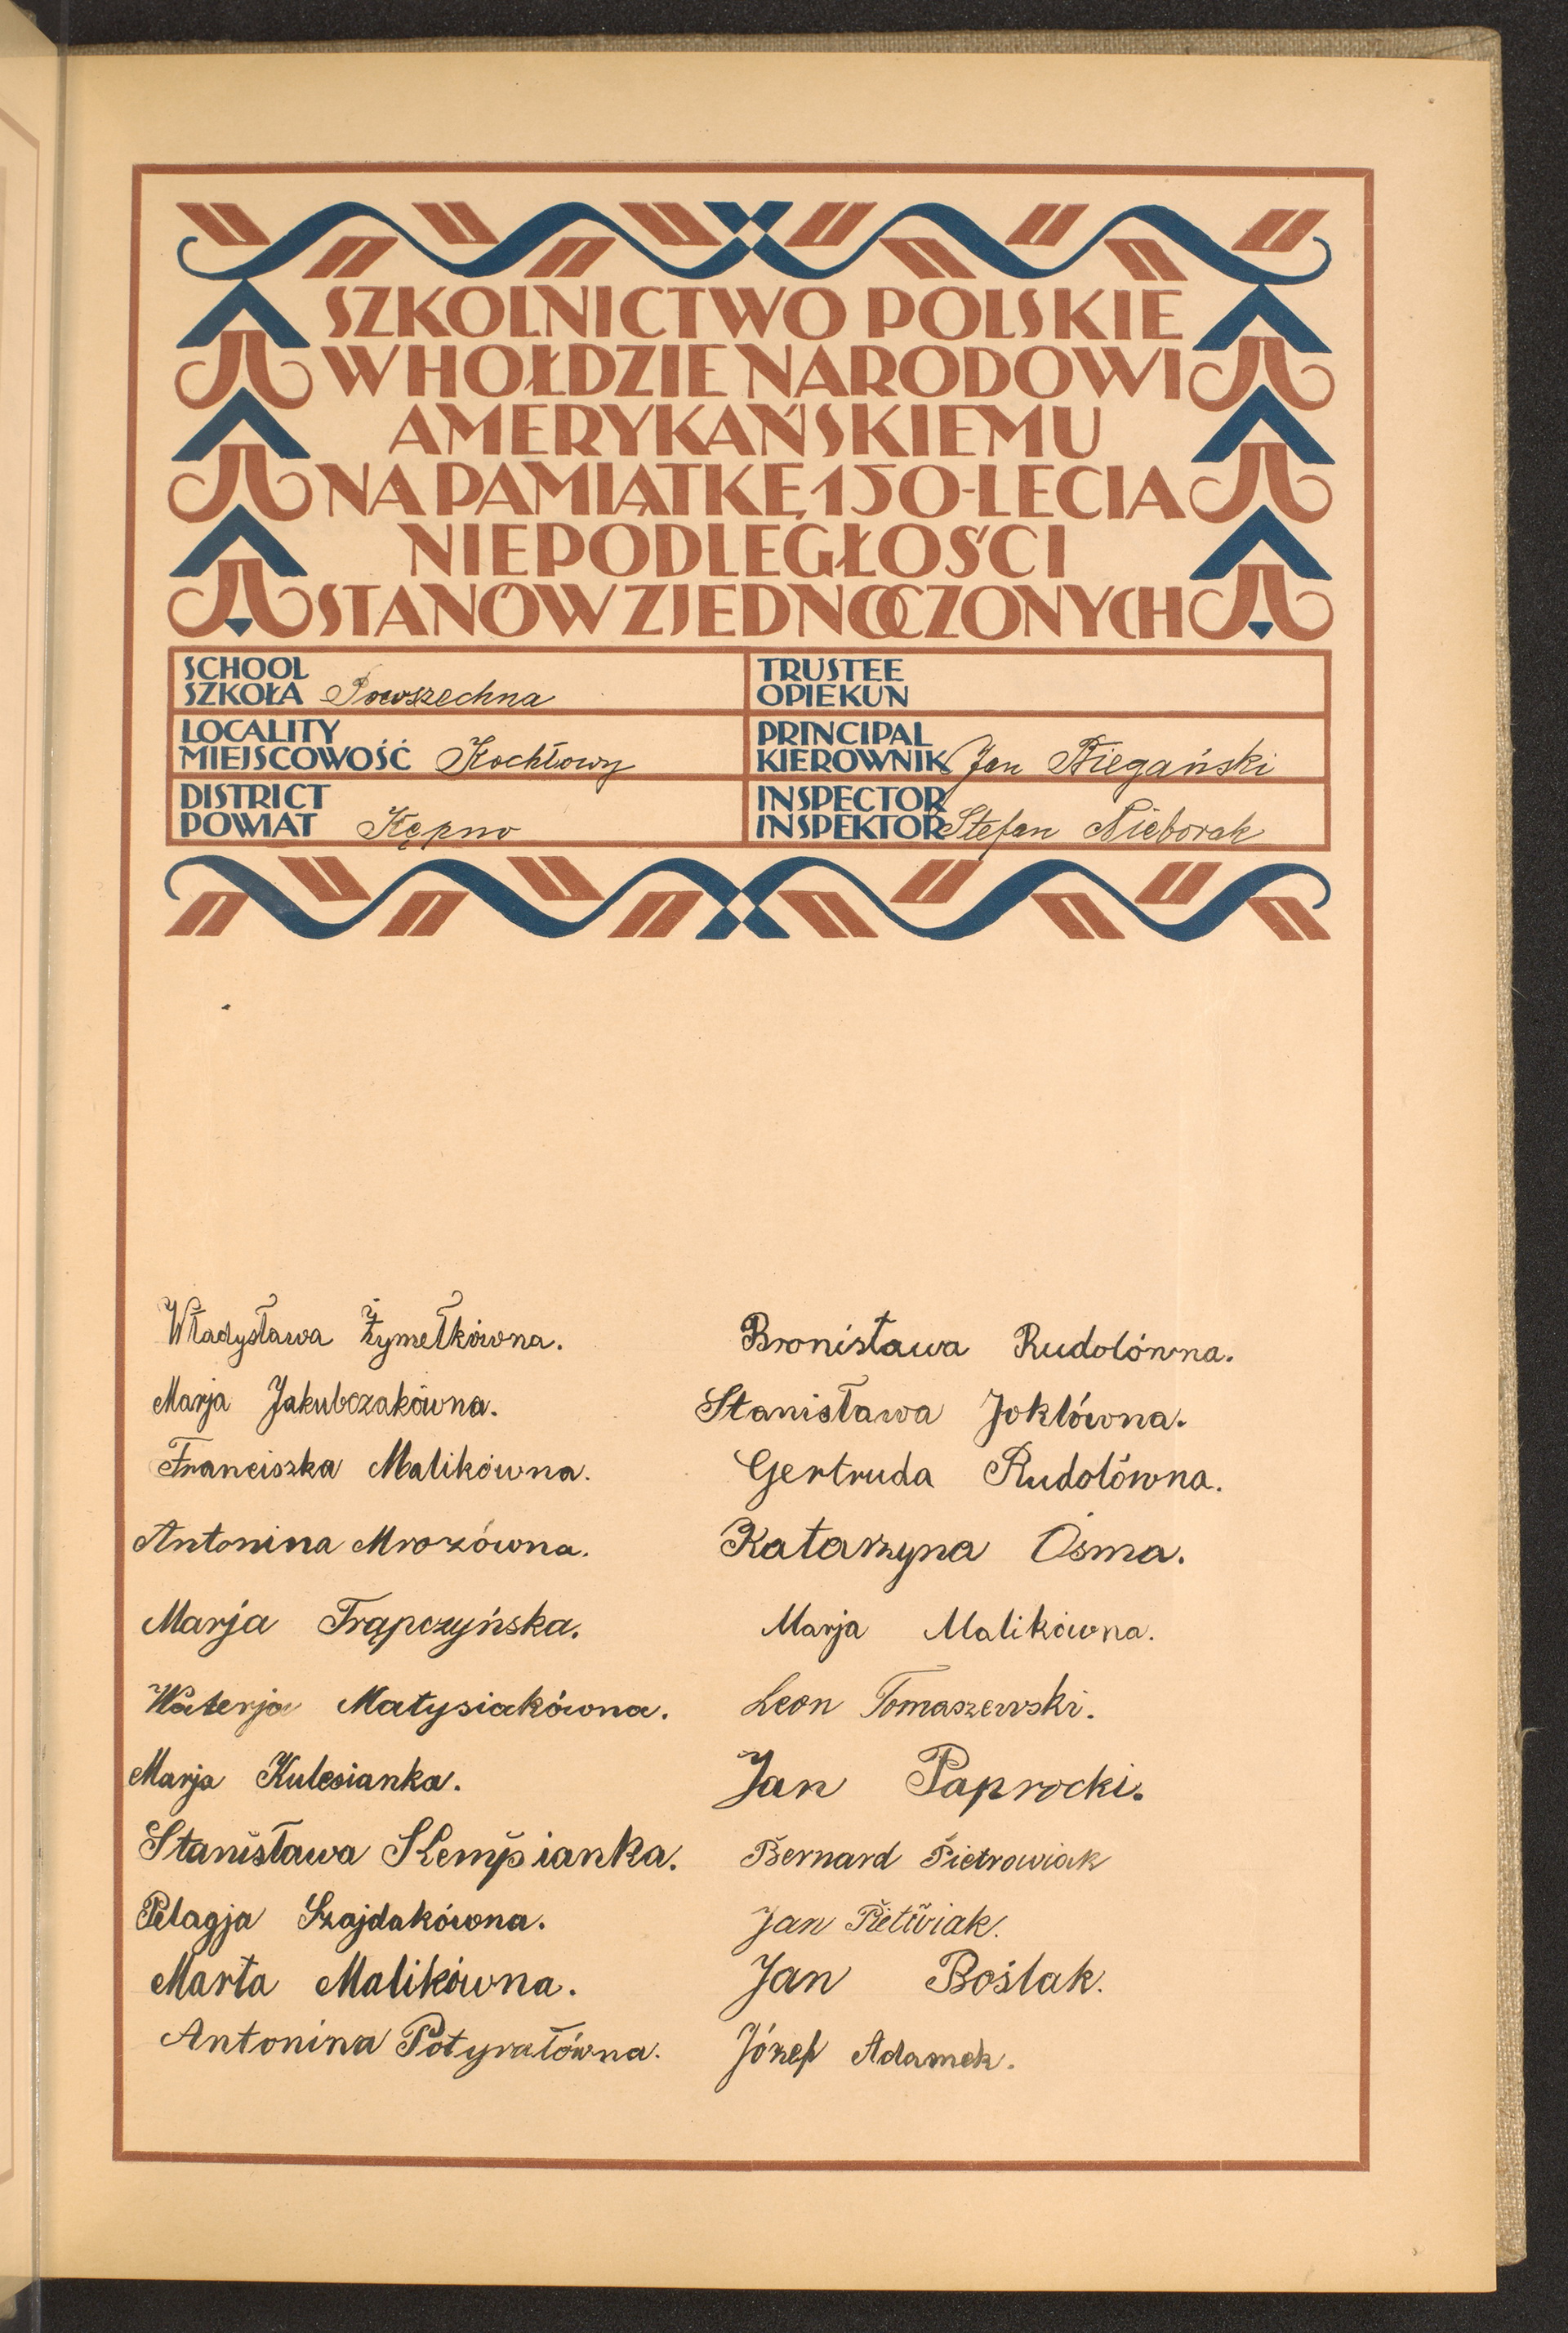 SZKOLNICTWO POLSKIE
W HOŁDZIE NARODOWI
AMERYKAŃSKIEMU
NA PAMIĄTKĘ 150-LECIA
NIEPODLEGŁOŚCI
STANÓW ZJEDNOCZONYCH
SCHOOL
SZKOŁA Powszechna
LOCALITY
MIEJSCOWOŚĆ Kochłowy
DISTRICT
POWIAT Kępno
TRUSTEE
OPIEKUN
PRINCIPAL
KIEROWNIK Jan Biegański
INSPECTOR
INSPEKTOR Stefan Nieborak
Władysława Żymełkówna.
Marja Jakubczakówna.
Franciszka Malikówna.
Antonina Mrozówna.
Marja Trąpczyńska.
Walerja Matysiakówna.
Marja Kulesianka.
Stanisława Kempianka.
Pelagja Szajdakówna.
Marta Malikówna.
Antonina Potyrałówna.
Bronisława Rudolówna.
Stanisława Joklówna.
Gertruda Rudolówna.
Katarzyna Osma.
Marja Malikówna.
Leon Tomaszewski.
Jan Paprocki.
Bernard Pietrowiak
Jan
Jan Boślak.
Józef Adamek.